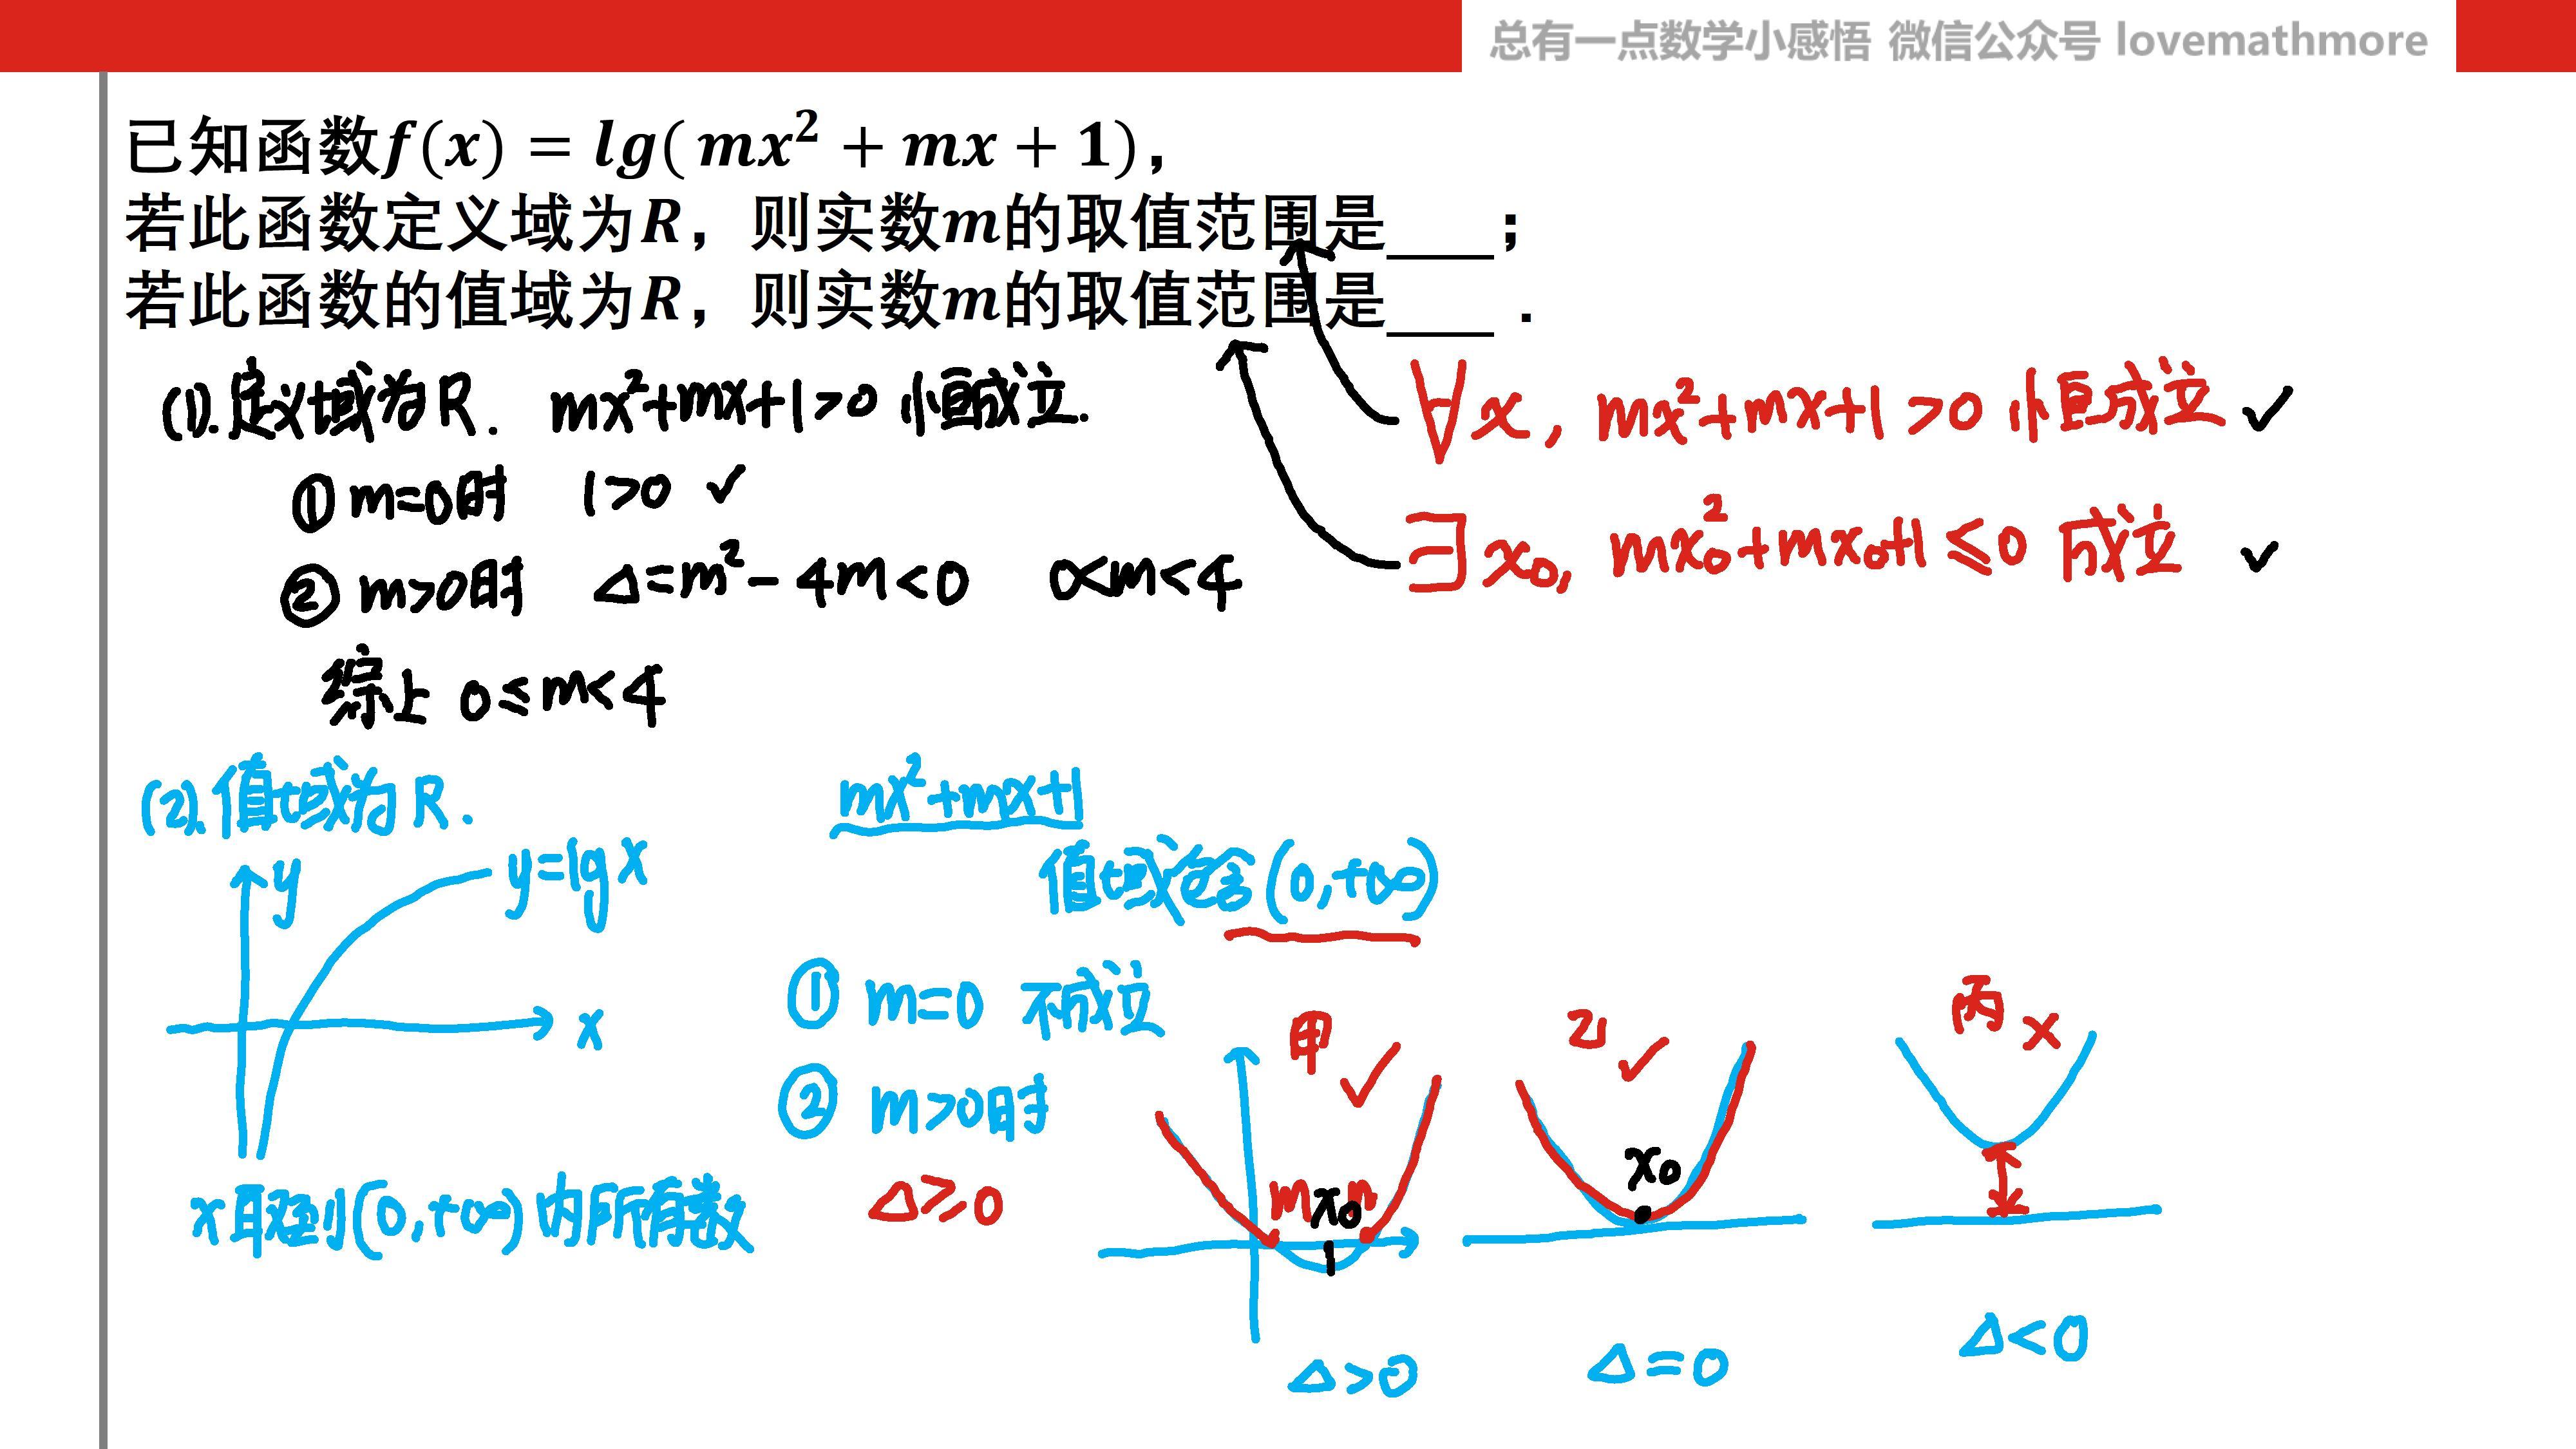 总有一点数学小感悟 微信公众号 lovemathmore
已知函数f(x) = lg( mx² + mx + 1)，
若此函数定义域为R，则实数m的取值范围是____；
若此函数的值域为R，则实数m的取值范围是____．
(1).定义域为R. mx²+mx+1>0 恒成立.
∀x, mx²+mx+1>0 恒成立 ✓
① m=0时 1>0 ✓
∃x₀, mx₀²+mx₀+1≤0 成立 ✓
② m>0时 Δ=m²-4m<0 0<m<4
综上 0≤m<4
(2).值域为R.
mx²+mx+1
y
y=lgx
值域包含(0,+∞)
x
① m=0 不成立
② m>0时
Δ≥0
x取到(0,+∞)内所有数
甲 ✓
乙 ✓
丙 x
m x₀ n
x₀
Δ>0
Δ=0
Δ<0